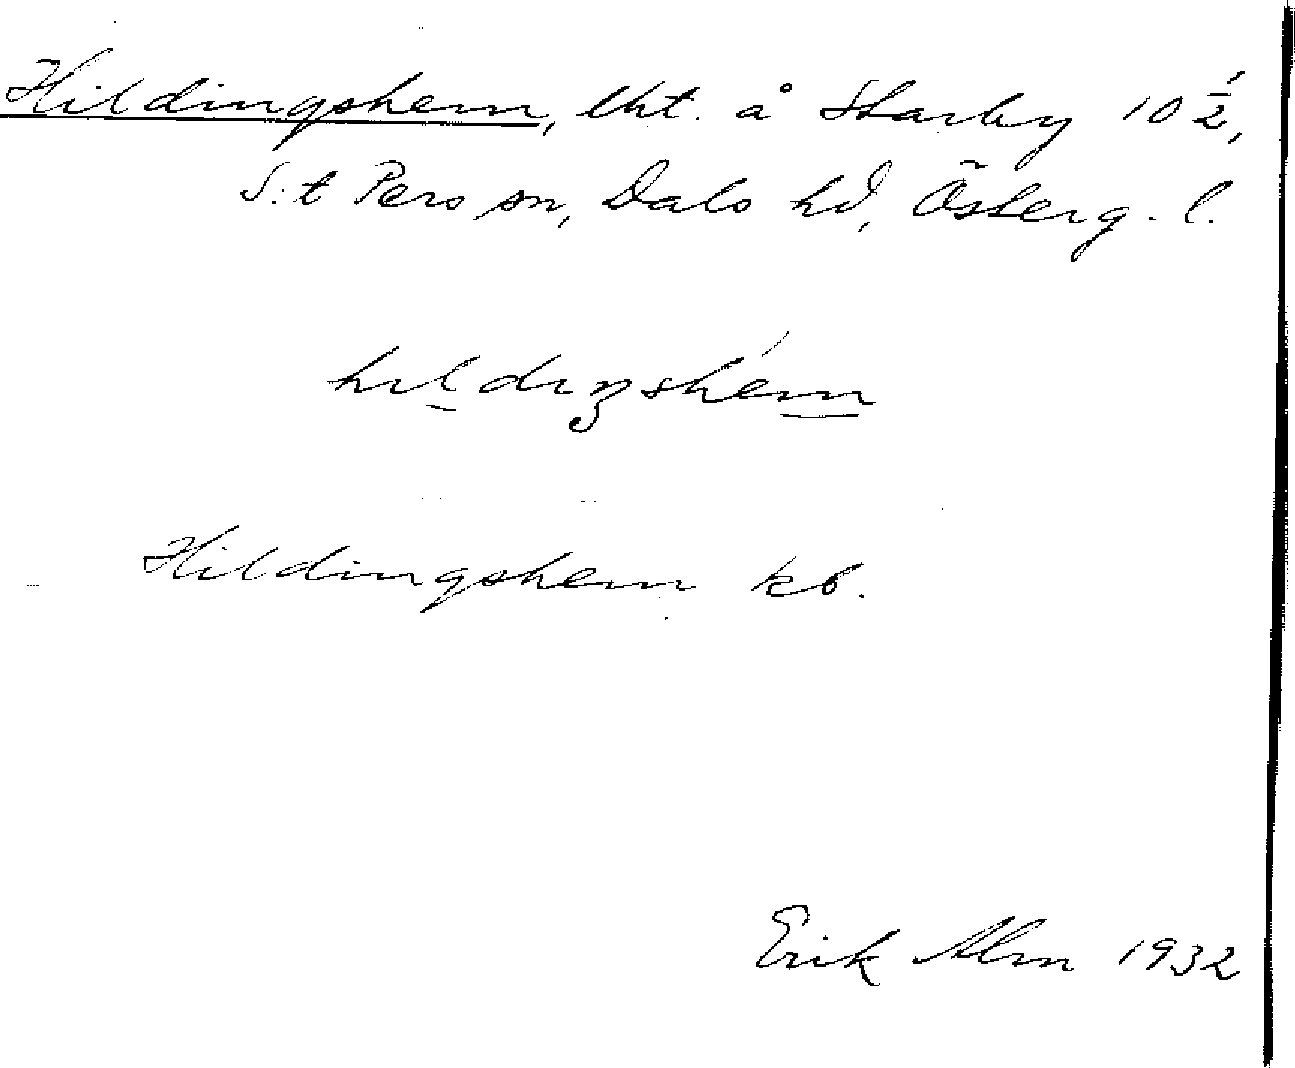 Hildingshem, lht. å Starby 10 1/2,
S:t Pers sn, Dals hd, Österg. l.
hildiŋshém
Hildingshem kb.
Erik Alm 1932